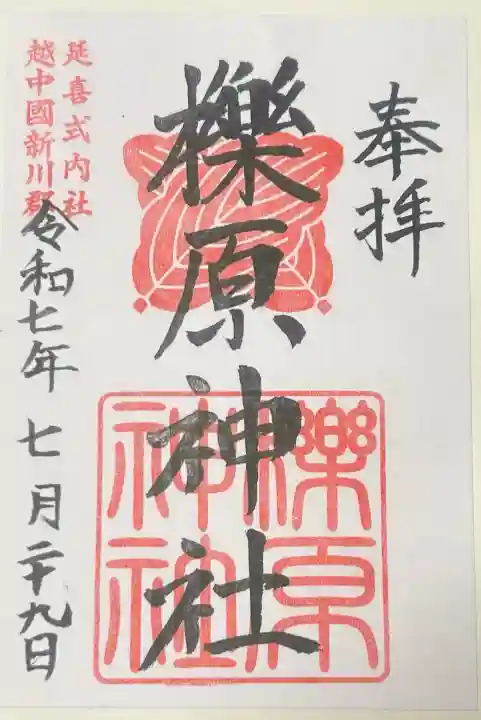 奉拝
櫟原神社
櫟原
神社
延喜式内社
越中國新川郡
令和七年七月二十九日